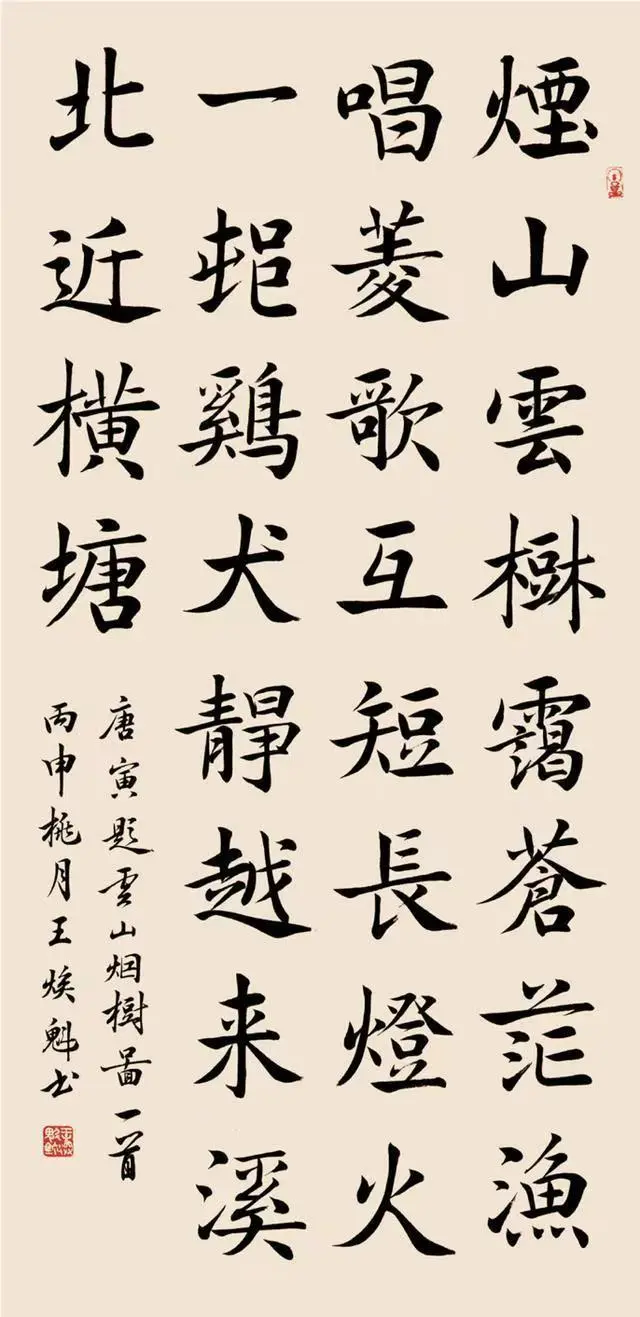 煙山雲樹靄蒼茫漁
唱菱歌互短長燈火
一邨鷄犬靜越来溪
北近橫塘
唐寅题雲山烟樹啚一首
丙申桃月王焕魁书